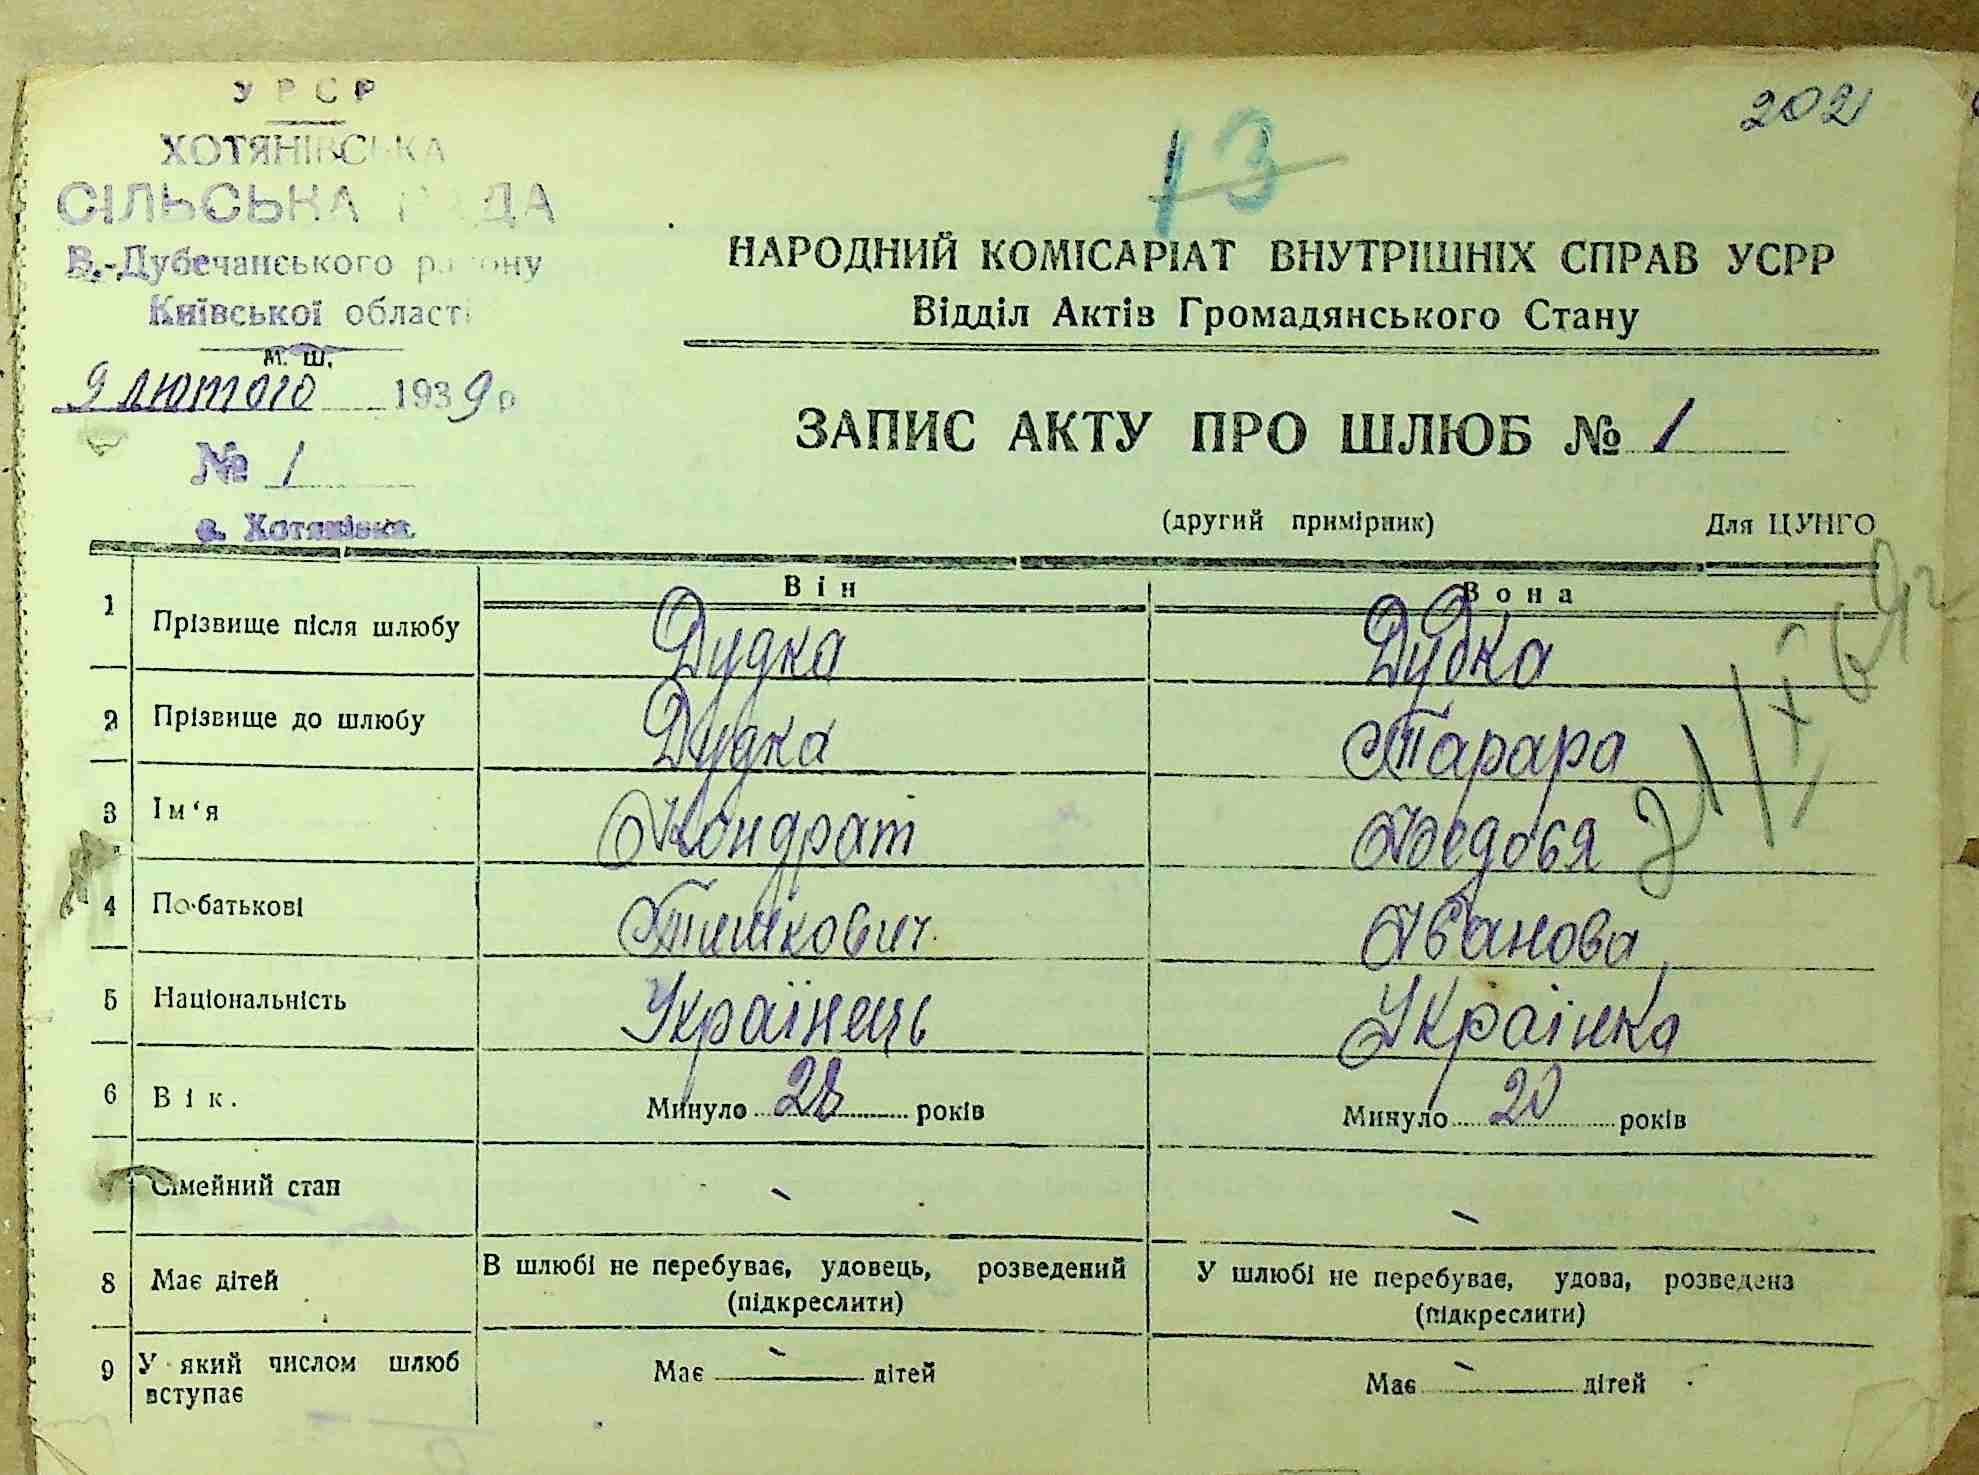 УРСР
ХОТЯНІВСЬКА
СІЛЬСЬКА РАДА
В.-Дубечанського району
Київської області
М. Ш.
9 лютого 1939 р
№ 1
с. Хотянівка.
13
202
НАРОДНИЙ КОМІСАРІАТ ВНУТРІШНІХ СПРАВ УСРР
Відділ Актів Громадянського Стану
ЗАПИС АКТУ ПРО ШЛЮБ № 1
(другий примірник) Для ЦУНГО
Він Вона
1 Прізвище після шлюбу Дудка Дудка
2 Прізвище до шлюбу Дудка Тарара
3 Ім'я Кондрат Федося
4 По-батькові Тимкович Іванова
5 Національність Українець Українка
6 Вік. Минуло 28 років Минуло 20 років
Сімейний стан - -
8 Має дітей В шлюбі не перебуває, удовець, розведений У шлюбі не перебуває, удова, розведена
(підкреслити) (підкреслити)
9 У який числом шлюб вступає Має - дітей Має - дітей